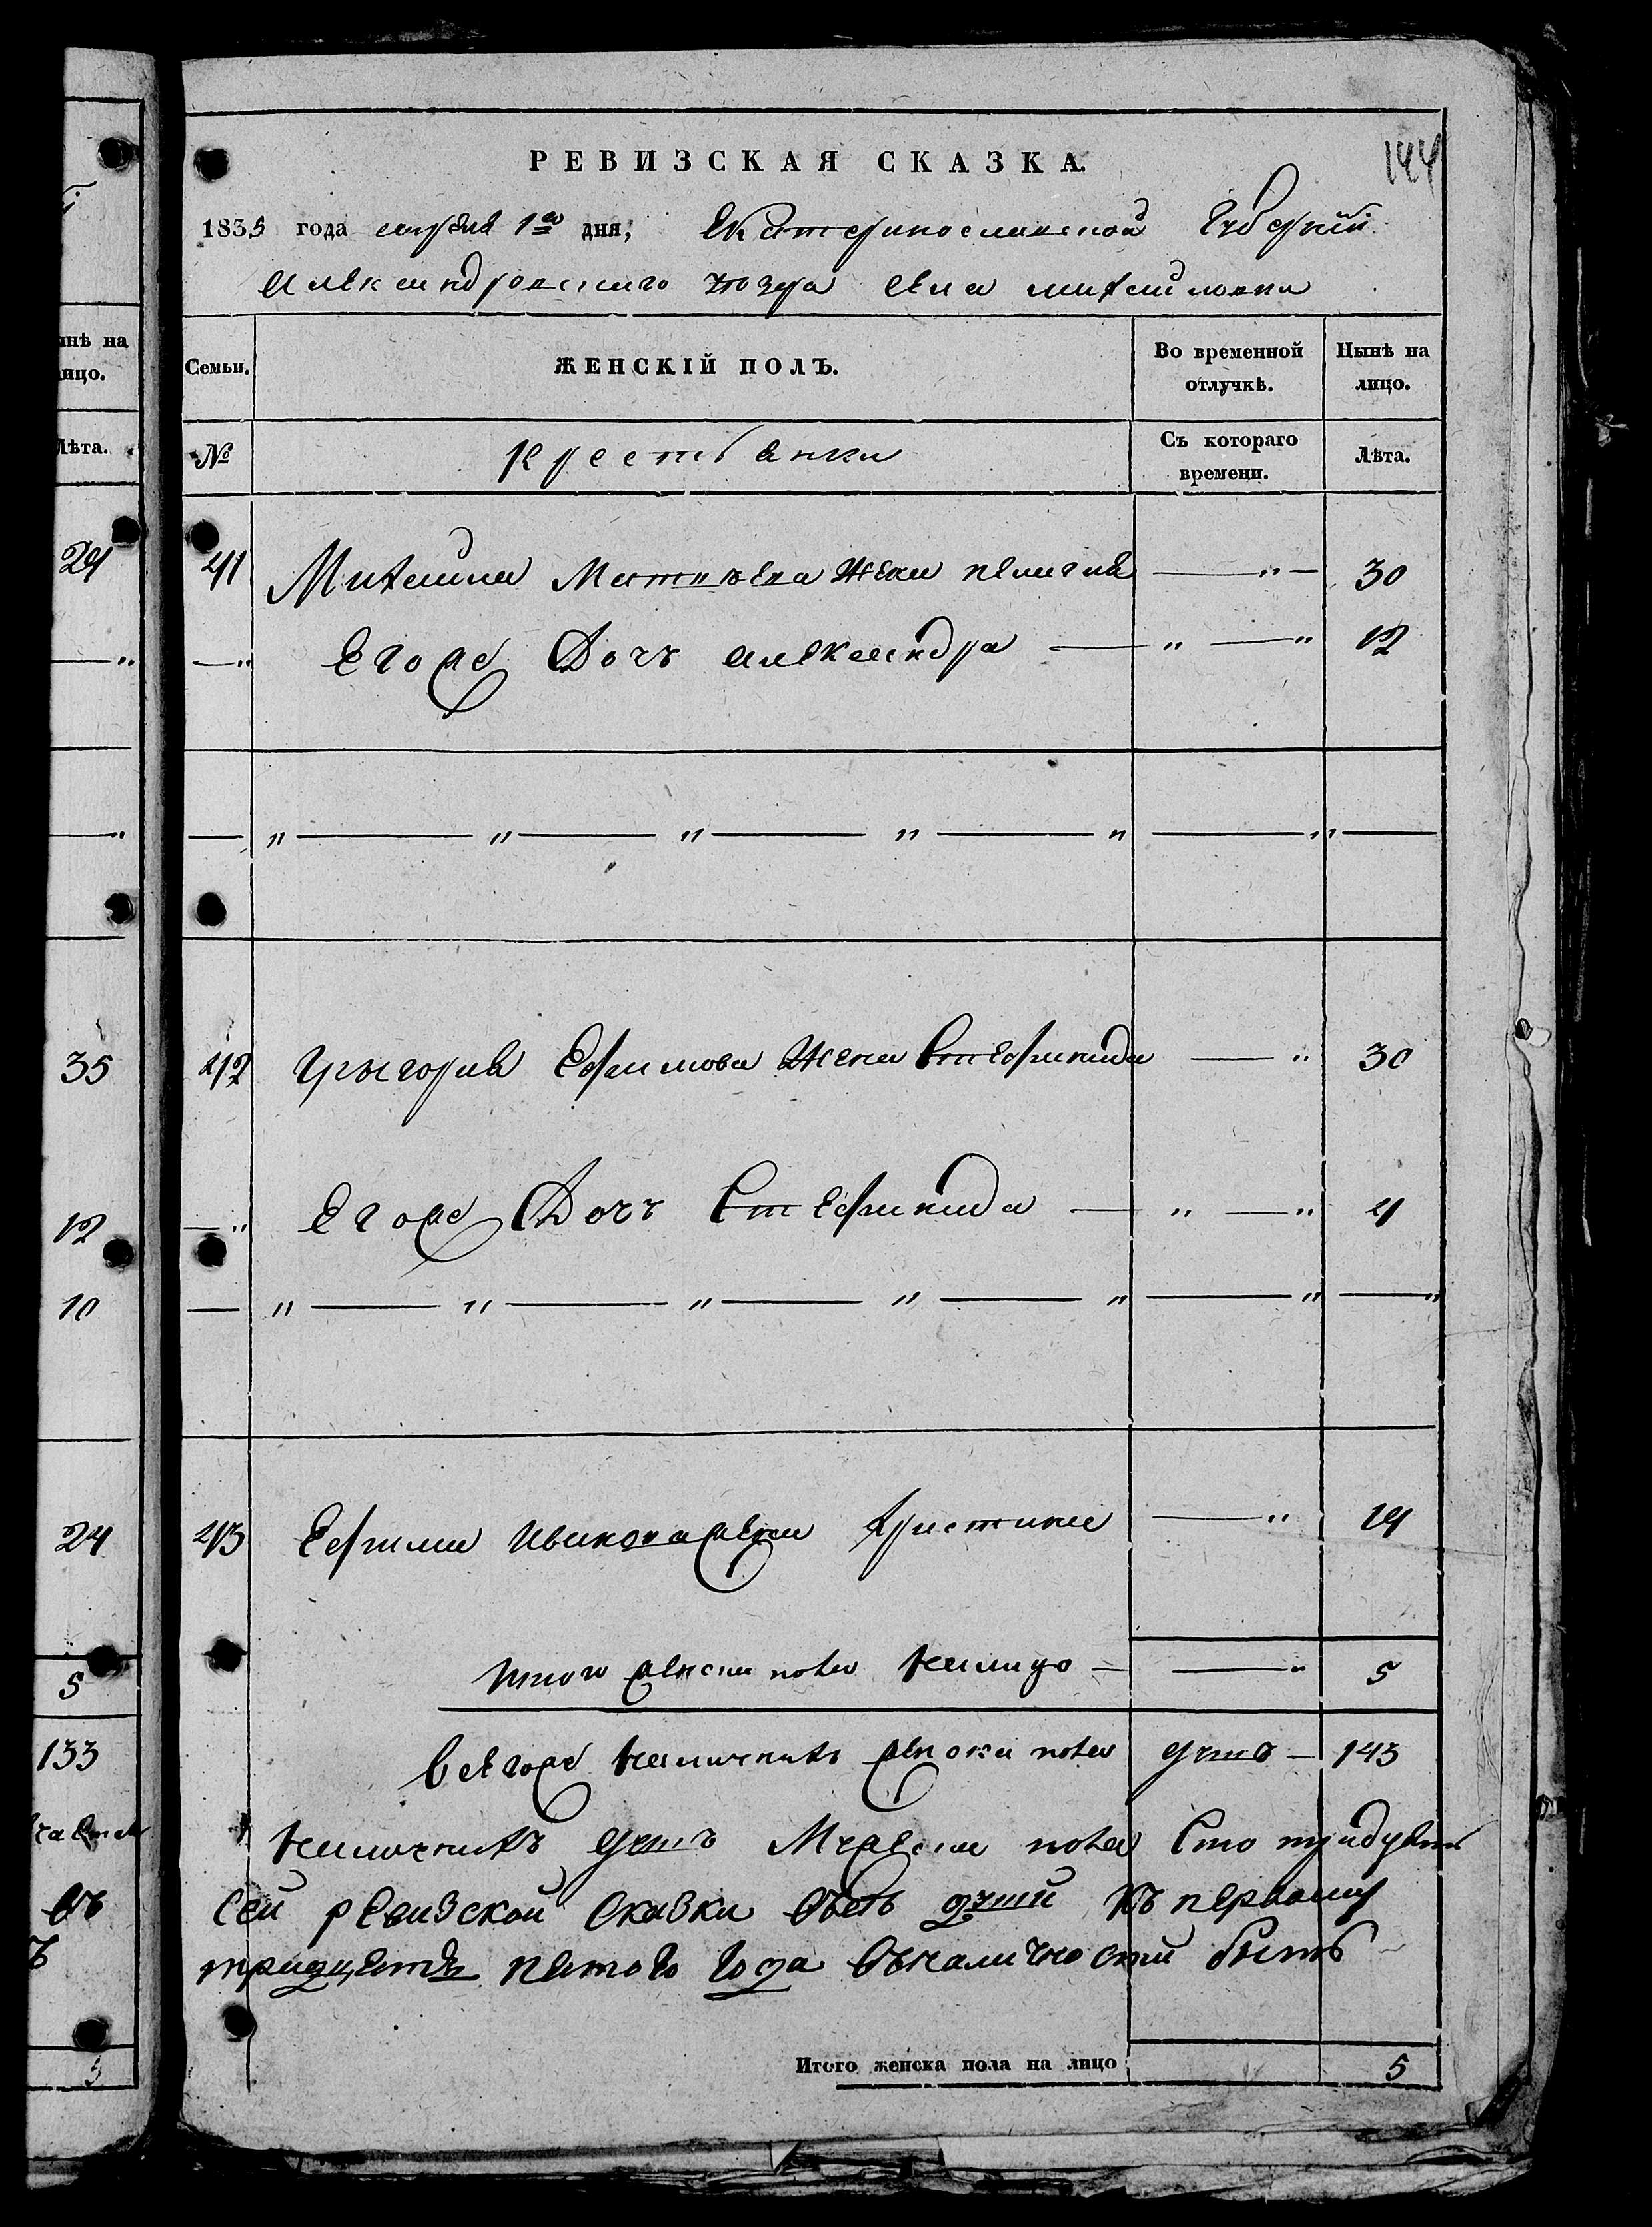 144
РЕВИЗСКАЯ СКАЗКА.
1835 года апреля 1го дня, Екатеринославской Губернїи
Александровского уезда села михайловки
Семьи. ЖЕНСКІЙ ПОЛЪ. Во временной отлучкѣ. Нынѣ на лицо.
№ крестьянки Съ котораго времени. Лѣта.
41 Михайла Матвѣева жена пелагия — " — 30
— " Егоже Дочъ александра — " — " 12
— " — " — " — " — " — " —
42 Грыгория Ефимова жена Стефанида — " 30
— " Егоже Дочъ Стефанида — " — " 4
— " — " — " — " — " — " — "
43 Ефима Иванова жена христина — " 19
Итого женска пола налицо — — " 5
Всегоже наличныхъ женска пола душъ — 143
наличныхъ душъ женска пола Сто тридцать
Сей ревизской Сказки душъ къ первому
тридцать пятого Года быть
Итого женска пола на лицо 5
нѣ на
ицо.
Лѣта.
24
— "
— "
35
12
10
24
5
133
въ
ъ
5